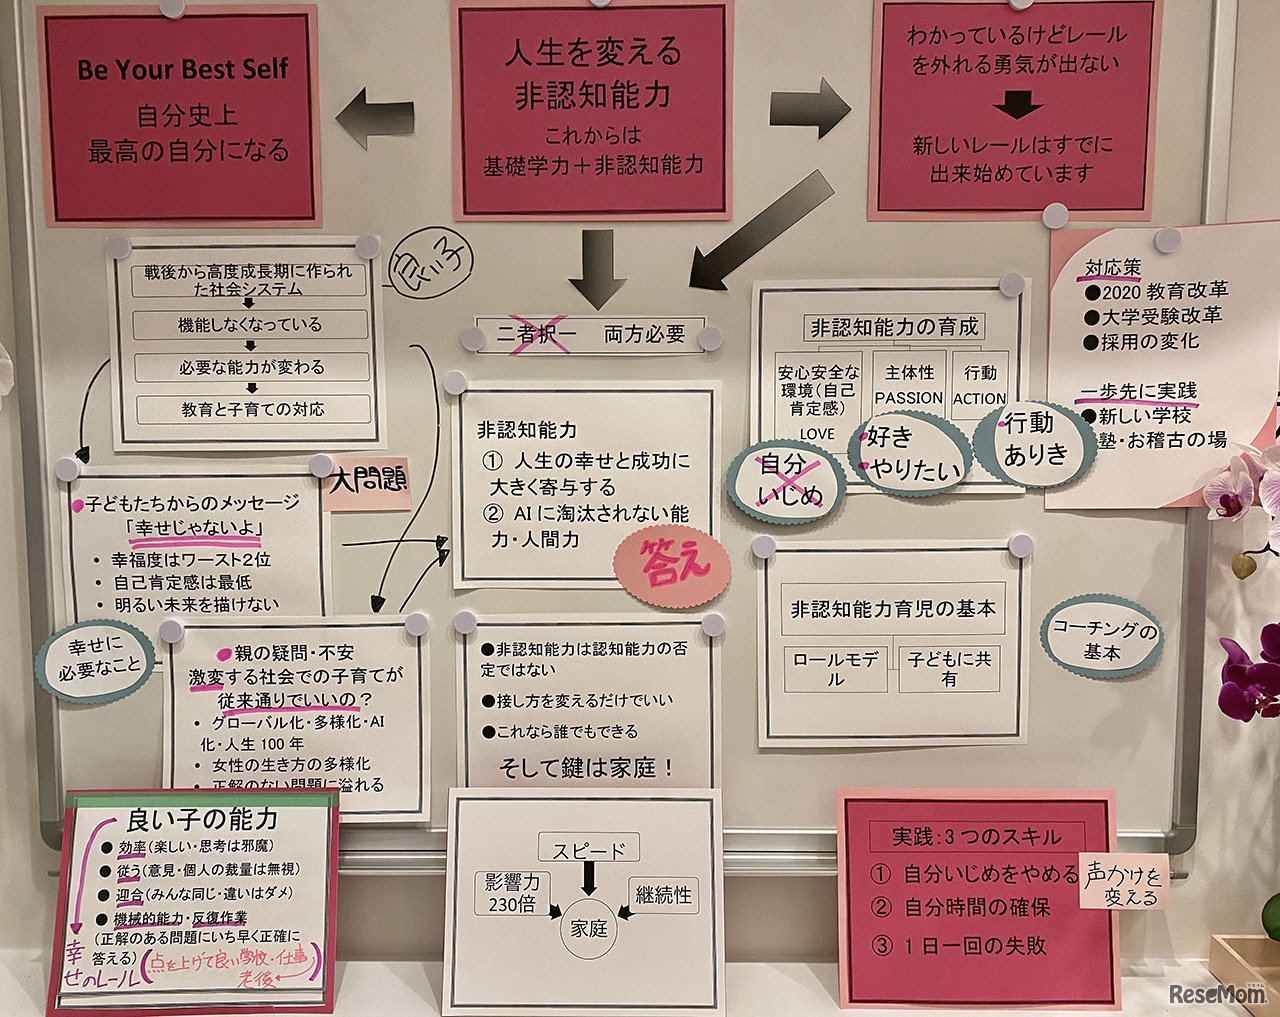 Be Your Best Self
自分史上
最高の自分になる
人生を変える
非認知能力
これからは
基礎学力＋非認知能力
わかっているけどレール
を外れる勇気が出ない
新しいレールはすでに
出来始めています
戦後から高度成長期に作られ
た社会システム
機能しなくなっている
必要な能力が変わる
教育と子育ての対応
良い子
二者択一　両方必要
非認知能力の育成
安心安全な
環境（自己
肯定感）
LOVE
主体性
PASSION
行動
ACTION
自分
いじめ
好き
やりたい
行動
ありき
対応策
●2020 教育改革
●大学受験改革
●採用の変化
一歩先に実践
●新しい学校
塾・お稽古の場
非認知能力
① 人生の幸せと成功に
大きく寄与する
② AI に淘汰されない能
力・人間力
答え
大問題
子どもたちからのメッセージ
「幸せじゃないよ」
・ 幸福度はワースト２位
・ 自己肯定感は最低
・ 明るい未来を描けない
幸せに
必要なこと
親の疑問・不安
激変する社会での子育てが
従来通りでいいの？
・ グローバル化・多様化・AI
化・人生 100 年
・ 女性の生き方の多様化
・ 正解のない問題に溢れる
●非認知能力は認知能力の否
定ではない
●接し方を変えるだけでいい
●これなら誰でもできる
そして鍵は家庭！
非認知能力育児の基本
ロールモデ
ル
子どもに共
有
コーチングの
基本
良い子の能力
● 効率（楽しい・思考は邪魔）
● 従う（意見・個人の裁量は無視）
● 迎合（みんな同じ・違いはダメ）
● 機械的能力・反復作業
（正解のある問題にいち早く正確に
答える）
幸せのレール
（点を上げて良い学校・仕事
老後）
スピード
影響力
230倍
継続性
家庭
実践：３つのスキル
① 自分いじめをやめる
② 自分時間の確保
③ １日一回の失敗
声かけを
変える
ReseMom
リセマム